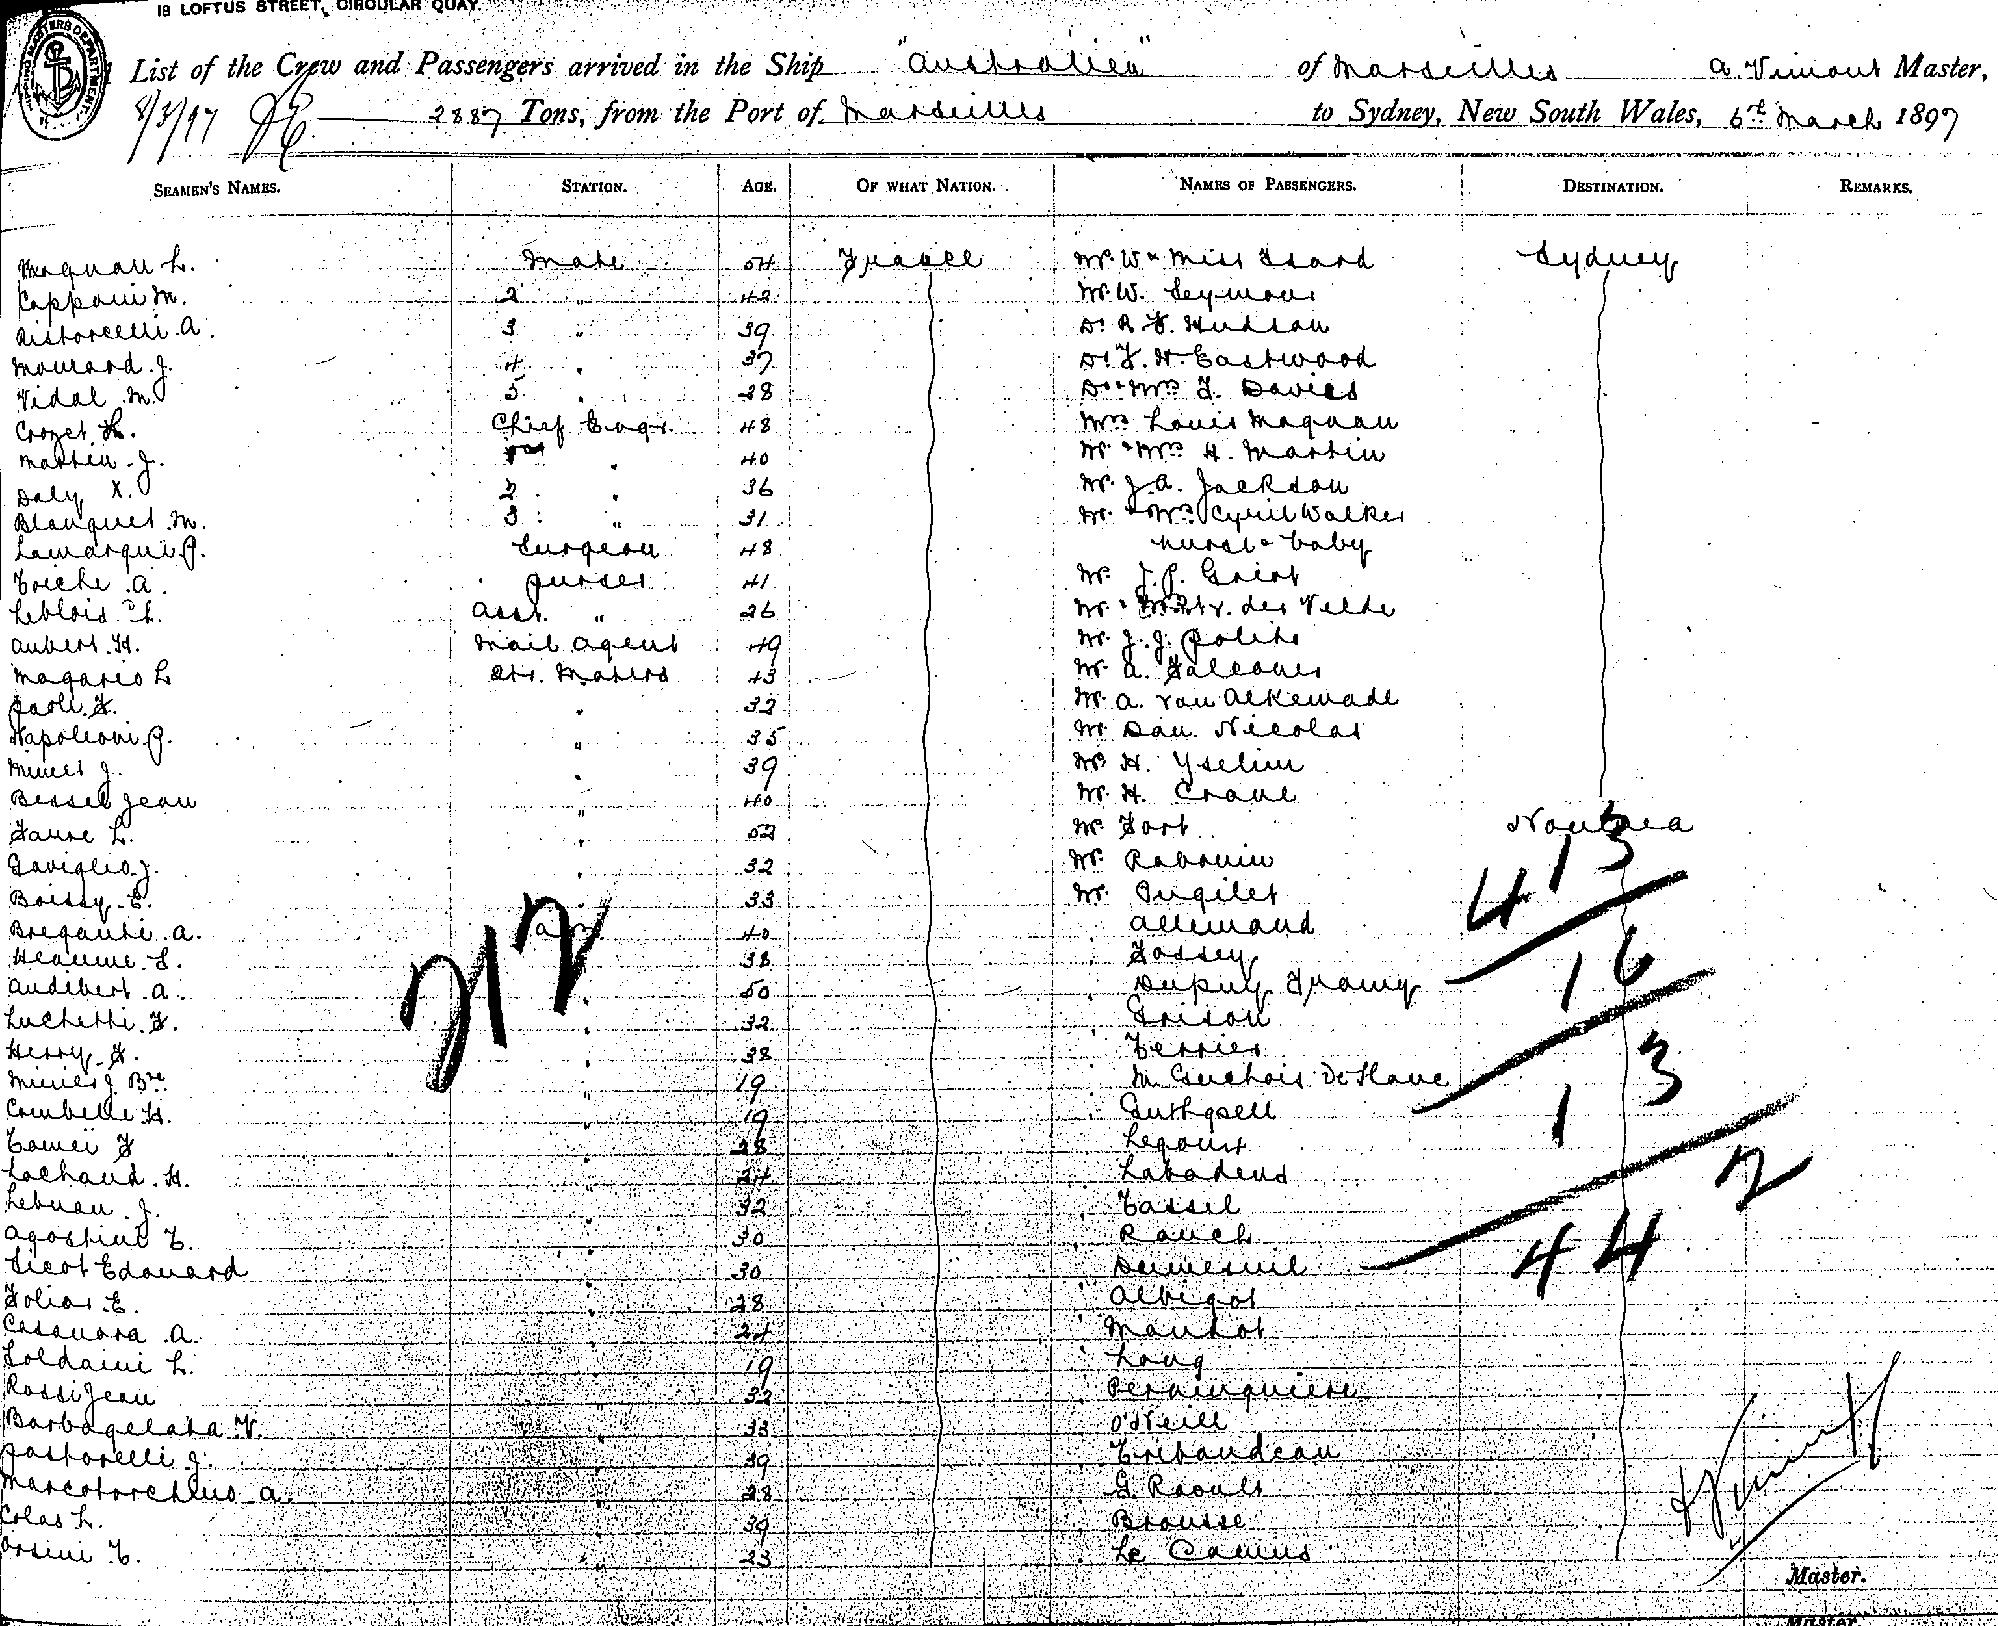 19 LOFTUS STREET, CIRCULAR QUAY.
List of the Crew and Passengers arrived in the Ship "Australien" of Marseilles A. Vimont Master,
8/3/97 2887 Tons, from the Port of Marseilles to Sydney, New South Wales, 6th March 1897
SEAMEN'S NAMES. STATION. AGE. OF WHAT NATION. NAMES OF PASSENGERS. DESTINATION. REMARKS.
Maquan L. Mate 54 France Mr W & Miss Isard Sydney
Capponi M. 2 " 42 Mr W. Seymour
Ristorcelli A. 3 " 39 Dr R. F. Hudson
Mourard J. 4 " 37 Dr F. H. Eastwood
Vidal M. 5 " 28 Dr & Mrs F. Davies
Crozet Chief Engr 48 Mrs Louis Maquan
Martin J. " 40 Mr & Mrs H. Martin
Daly X. 2 " 36 Mr J. A. Jackson
Blanquet M. 3 " 31 Mr & Mrs Cyril Walker
Lamarque P. Surgeon 48 nurse & baby
Triche A. purser 41 Mr J. P. Grist
Leblois Ch. Asst. " 26 Mr & der Velde
Aubert H. Mail Agent 49 Mr J. J. Polite
Magario L Str. Maters 43 Mr A. Falconer
Paoli F. " 32 Mr A. van Alkemade
Napoleoni P. " 35 Mr Dan. Nicolas
Minier J. " 39 Mr H. Yselin
Bessel Jean " 40 Mr H. Crane
Faure L. " 52 Mr Fort Noumea
Gaviglio J. " 32 Mr Rabouin
Boissy E. " 33 Mr Pugilet
Breganti A. " 40 " Allemand
Heaume S. " 38 " Fossey
Audibert A. " 50 " Dupuy
Luchetti F. " 32 " Frison
Herry F. " 38 " Terrier
Minier J. Bre " 19 " M.
Combelle H. " 19 "
Tomei F " 28 "
Lachaud H. " 24 " Labadens
Lebnan J. " 32 " Tassel
Agostini T. " 30 " Rauch
Sicot Edouard " 30 " Dumesnil
Folias E. " 28 " Albigot
Casanova A. " 24 " Mansot
Soldaini L. " 19 " Long
Rossi Jean " 32 "
Barbagelata V. " 33 " O'Neill
Pastorelli J. " 39 " Tribaudeau
A. " 28 " G. Raoult
Colas L. " 39 " Brousse
Orsini T. " 23 " Le Camus
212
413
16
13
2
44
Vimont
Master.
Master